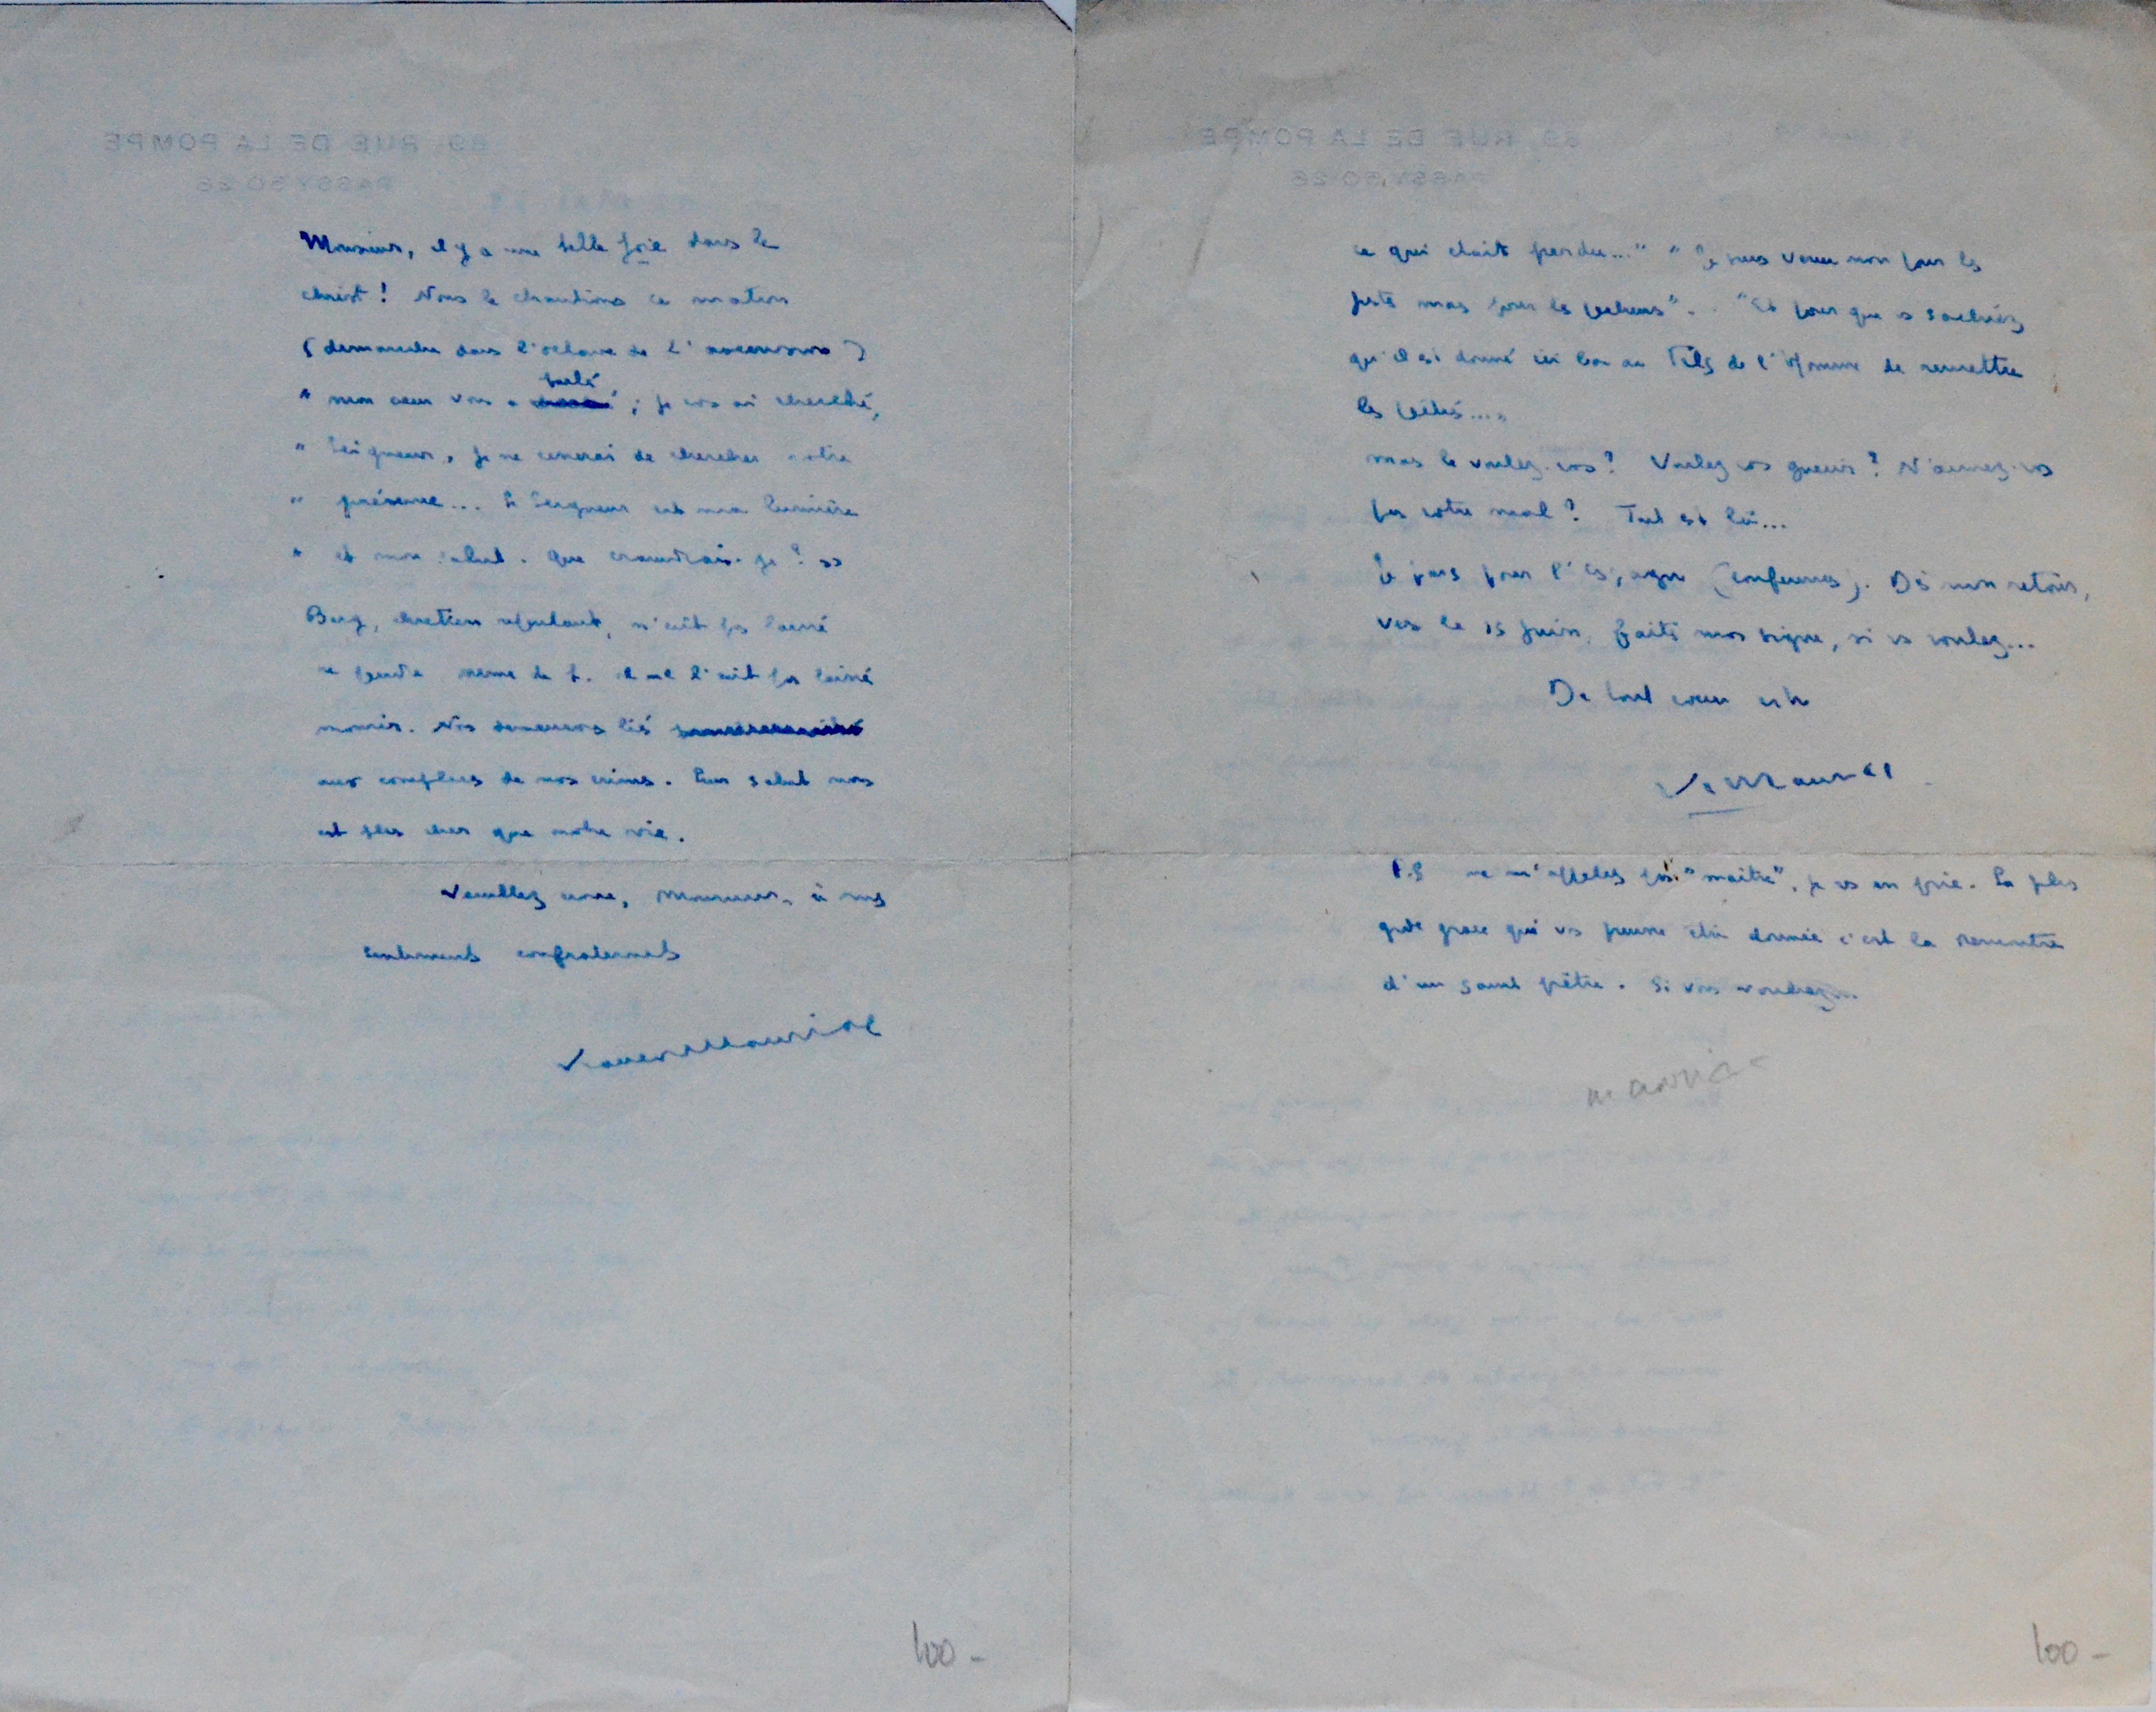 89, RUE DE LA POMPE
PASSY 50-26
Monsieur, il y a une telle joie dans le
Christ ! Nous le chantions ce matin
(dimanche dans l'octave de l'ascension)
" mon cœur vous a parlé ; je vous ai cherché,
" Seigneur, je ne cesserai de chercher votre
" présence... Le Seigneur est ma lumière
" et mon salut. Que craindrais-je ? »
Berg, chrétien repentant, n'eût pas
même de T. il ne l'eût pas laissé
mourir. Nos demeurons liés
aux complices de nos crimes. Leur salut nous
est plus cher que notre vie.
Veuillez croire, Monsieur, à mes
sentiments confraternels
François Mauriac
100 -
89, RUE DE LA POMPE
PASSY 50-26
ce qui était perdu..." " Je suis venu non pour les
justes mais pour les pécheurs". "Et pour que vs sachiez
qu'il est donné ici bas au Fils de l'Homme de remettre
les péchés..."
mais le voulez-vos ? Voulez vos guérir ? N'aimez-vos
pas votre mal ? Tout est là...
Je pars pour l'Espagne (conférences). Dès mon retour,
vers le 15 juin, faites moi signe, si vs voulez...
De tout cœur
Fr Mauriac
P.S ne m'appelez pas "maitre", je vs en prie. La plus
gde grace qui vs puisse être donnée c'est la rencontre
d'un saint prêtre. Si vous vouliez...
mauriac
100 -